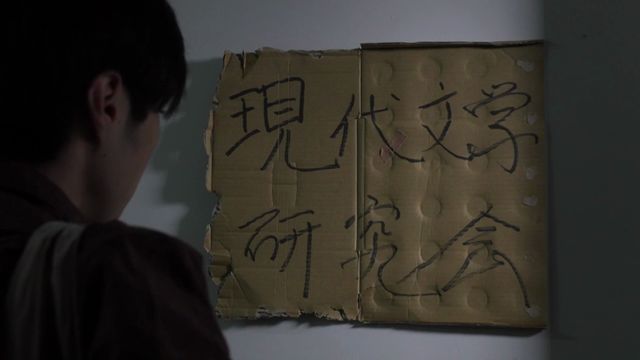 現代文学
研究会